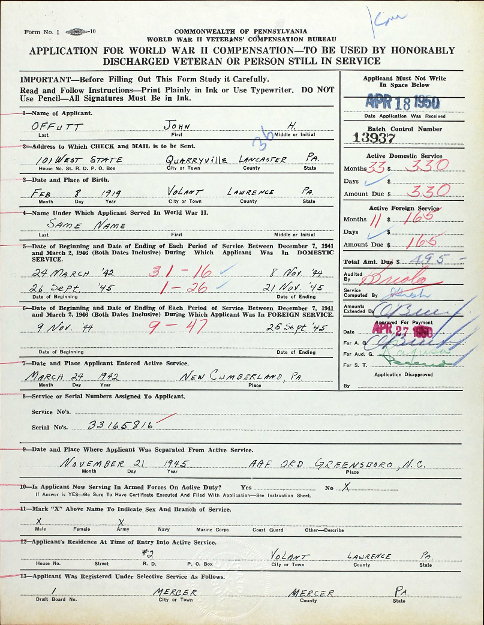 Form No. 1
COMMONWEALTH OF PENNSYLVANIA
WORLD WAR II VETERANS' COMPENSATION BUREAU
APPLICATION FOR WORLD WAR II COMPENSATION—TO BE USED BY HONORABLY
DISCHARGED VETERAN OR PERSON STILL IN SERVICE
IMPORTANT—Before Filling Out This Form Study it Carefully.
Read and Follow Instructions—Print Plainly in Ink or Use Typewriter. DO NOT
Use Pencil—All Signatures Must Be in Ink.
Applicant Must Not Write
In Space Below
APR 18 1950
Date Application Was Received
Batch Control Number
13937
Active Domestic Service
Months 33 $ 330
Days $
Amount Due $ 330
Active Foreign Service
Months 11 $ 165
Days $
Amount Due $ 165
Total Amt. Due $ 495
Audited
By
Service
Computed By
Amounts
Extended By
Approved For Payment
Date APR 27 1950
For A. G.
For Aud. G.
For S. T.
Application Disapproved
By
1—Name of Applicant.
OFFUTT JOHN H.
Last First Middle or Initial
2—Address to Which CHECK and MAIL is to be Sent.
36
101 WEST STATE QUARRYVILLE LANCASTER PA.
House No. St. R. D. P. O. Box City or Town County State
3—Date and Place of Birth.
FEB 8 1919 VOLANT LAWRENCE PA.
Month Day Year City or Town County State
4—Name Under Which Applicant Served In World War II.
SAME NAME
Last First Middle or Initial
5—Date of Beginning and Date of Ending of Each Period of Service Between December 7, 1941
and March 2, 1946 (Both Dates Inclusive) During Which Applicant Was In DOMESTIC
SERVICE.
24 MARCH '42 31-16 8 NOV. '44
26 SEPT. '45 1-26 21 NOV. '45
Date of Beginning Date of Ending
6—Date of Beginning and Date of Ending of Each Period of Service Between December 7, 1941
and March 2, 1946 (Both Dates Inclusive) During Which Applicant Was In FOREIGN SERVICE.
9 NOV. '44 9-47 25 SEPT. '45
Date of Beginning Date of Ending
7—Date and Place Applicant Entered Active Service.
MARCH 24 1942 NEW CUMBERLAND, PA.
Month Day Year Place
8—Service or Serial Numbers Assigned To Applicant.
Service No's.
Serial No's. 33165816
9—Date and Place Where Applicant Was Separated From Active Service.
NOVEMBER 21 1945 AAF ORD GREENSBORO, N.C.
Month Day Year Place
10—Is Applicant Now Serving In Armed Forces On Active Duty? Yes No X
If Answer is YES—Be Sure To Have Certificate Executed And Filed With Application—See Instruction Sheet.
11—Mark "X" Above Name To Indicate Sex And Branch of Service.
X X
Male Female Army Navy Marine Corps Coast Guard Other—Describe
12—Applicant's Residence At Time of Entry Into Active Service.
#2 VOLANT LAWRENCE PA
House No. Street R. D. P. O. Box City or Town County State
13—Applicant Was Registered Under Selective Service As Follows.
1 MERCER MERCER PA
Draft Board No. City or Town County State